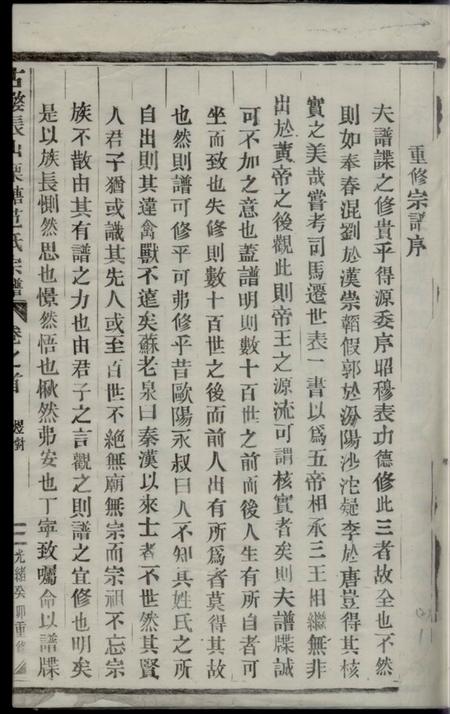 重修宗譜序
夫譜諜之修貴乎得源委序昭穆表功德修此三者故全也不然
則如奉春混劉於漢崇韜假郭於汾陽沙沱疑李於唐豈得其核
實之美哉嘗考司馬遷世表一書以爲五帝相承三王相繼無非
出於黃帝之後觀此則帝王之源流可謂核實者矣則夫譜牒誠
可不加之意也蓋譜明則數十百世之前而後人生有所自者可
坐而致也失修則數十百世之後而前人出有所爲者莫得其故
也然則譜可修乎可弗修乎昔歐陽永叔曰人不知其姓氏之所
自出則其違禽獸不遠矣蘇老泉曰秦漢以來士者不世然其賢
人君子猶或識其先人或至百世不絕無廟無宗而宗祖不忘宗
族不散由其有譜之力也由君子之言觀之則譜之宜修也明矣
是以族長惻然思也憬然悟也愀然弗安也丁寧致囑命以譜牒
古婺長山栗塘范氏宗譜 卷之首 光緒癸卯重修